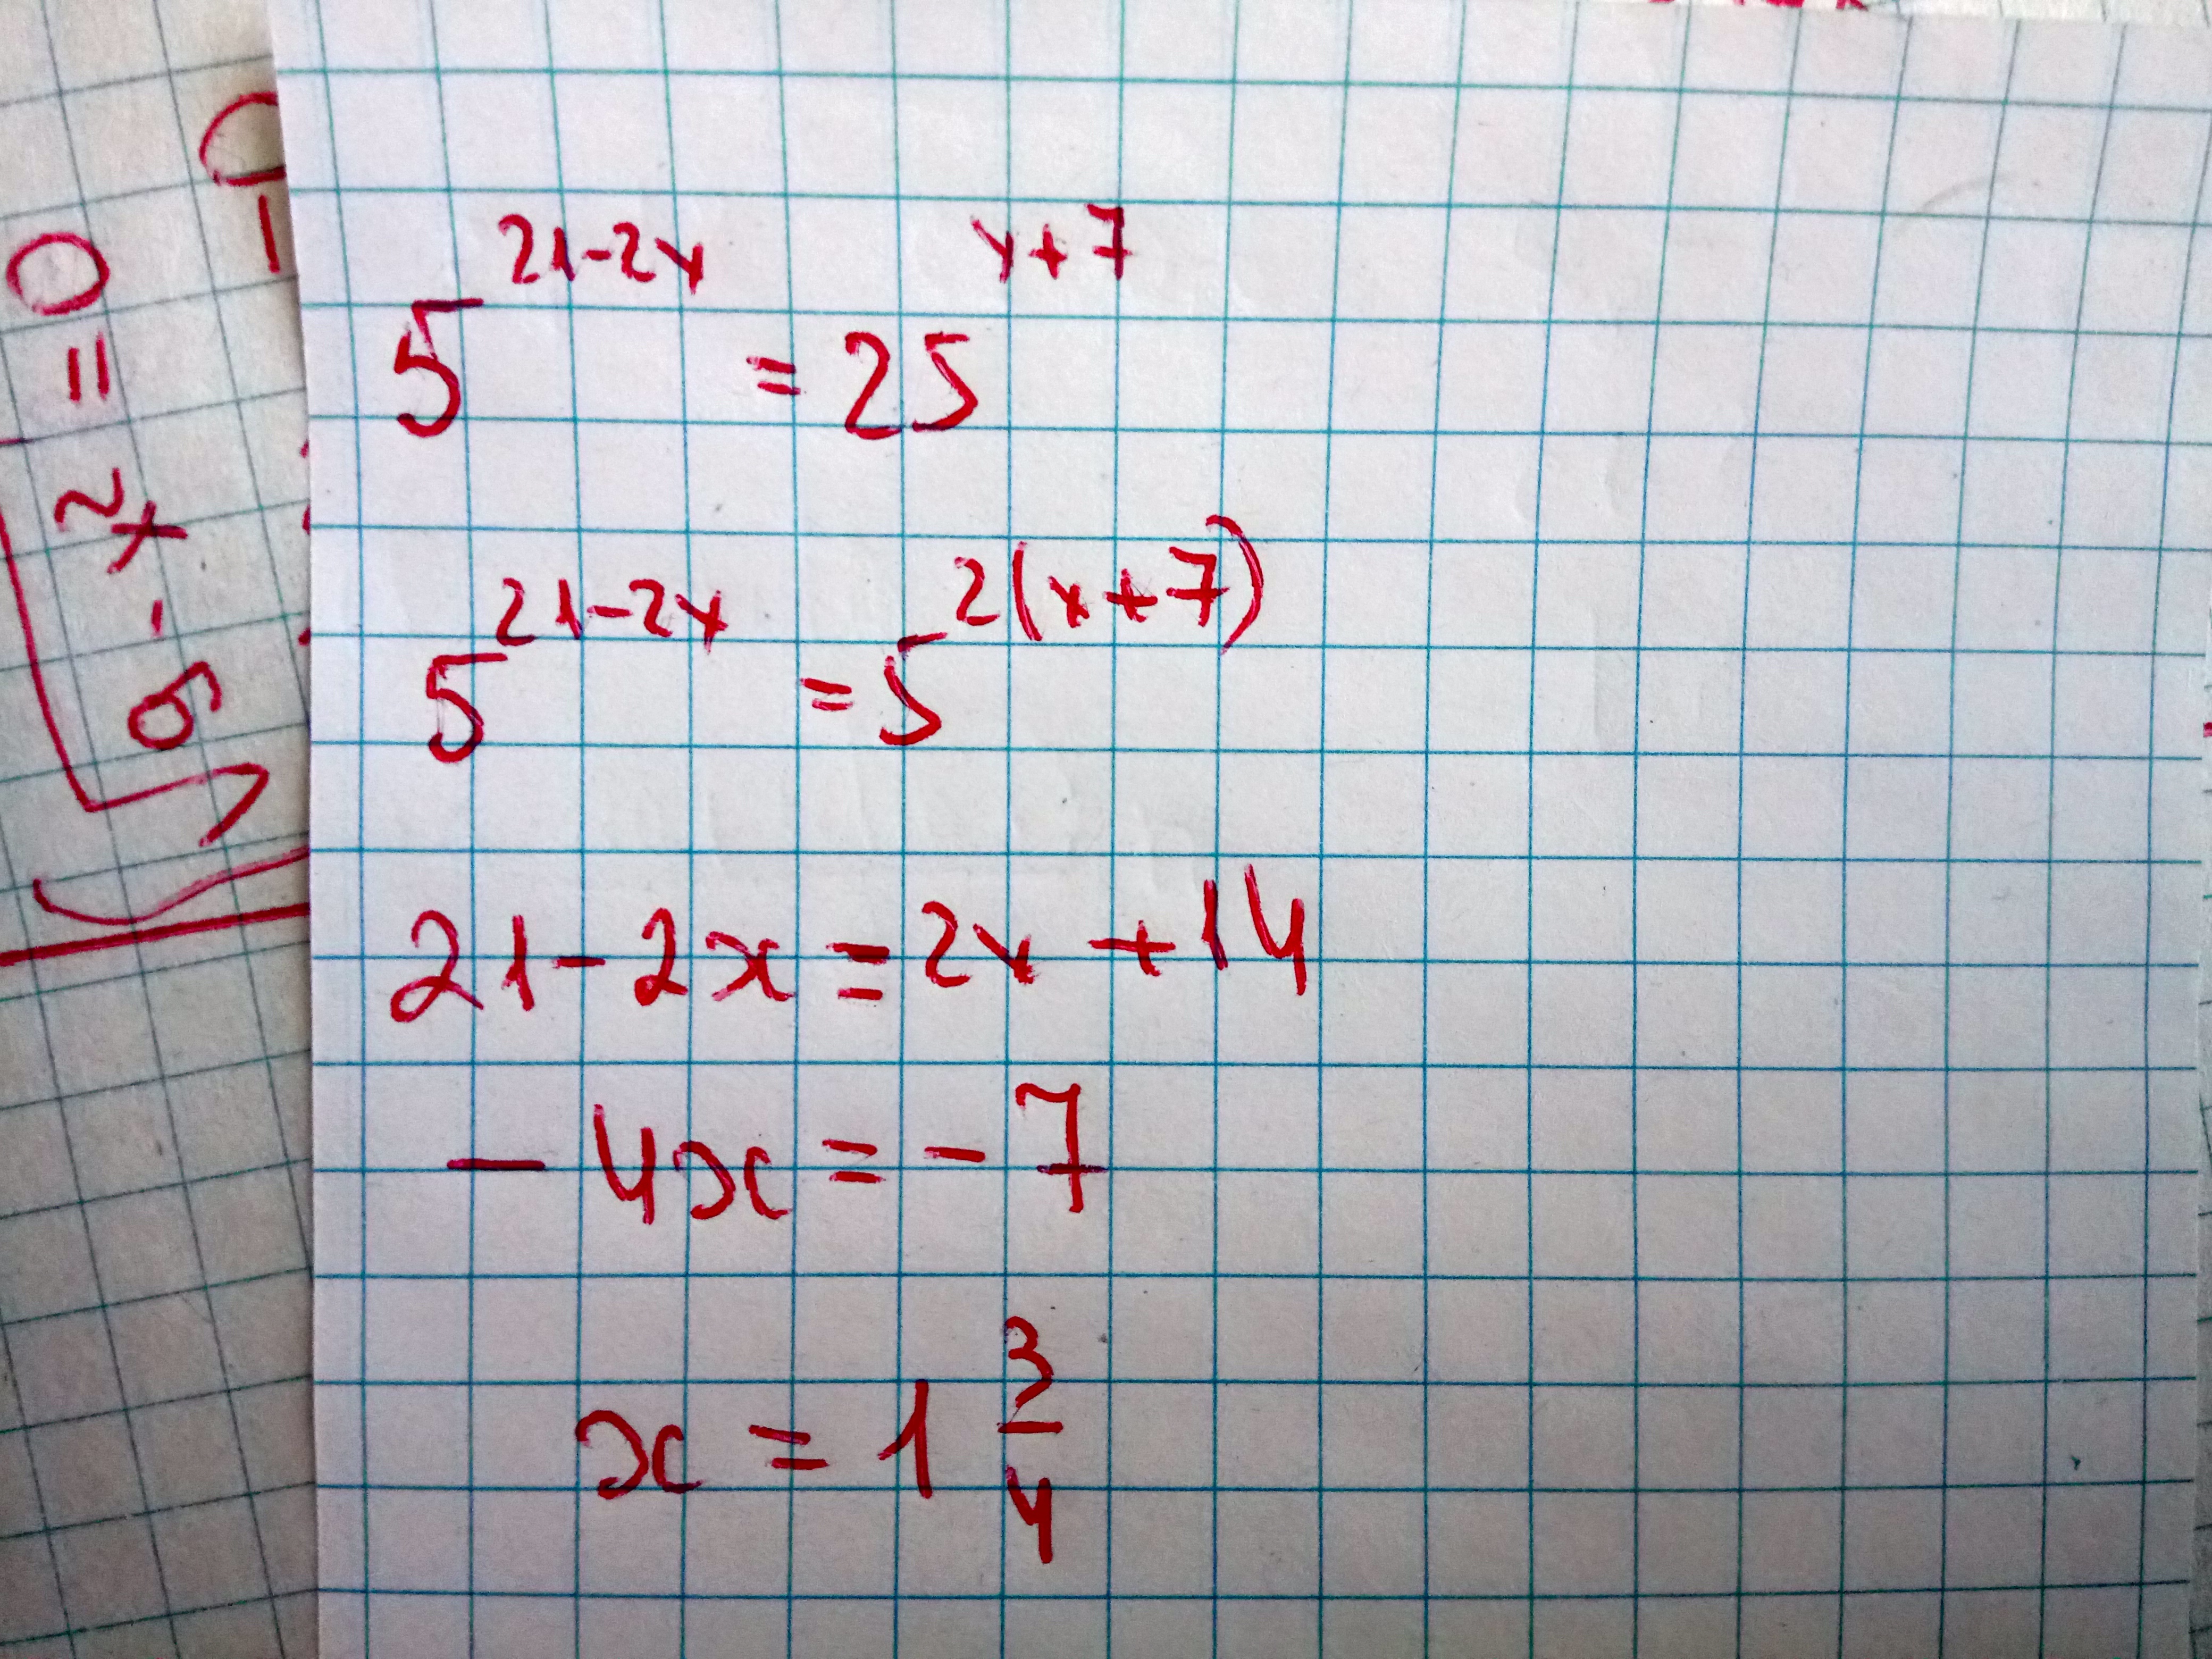 √9 - x² = 0
5^(21-2x) = 25^(x+7)
5^(21-2x) = 5^(2(x+7))
21 - 2x = 2x + 14
- 4x = - 7
x = 1 3/4